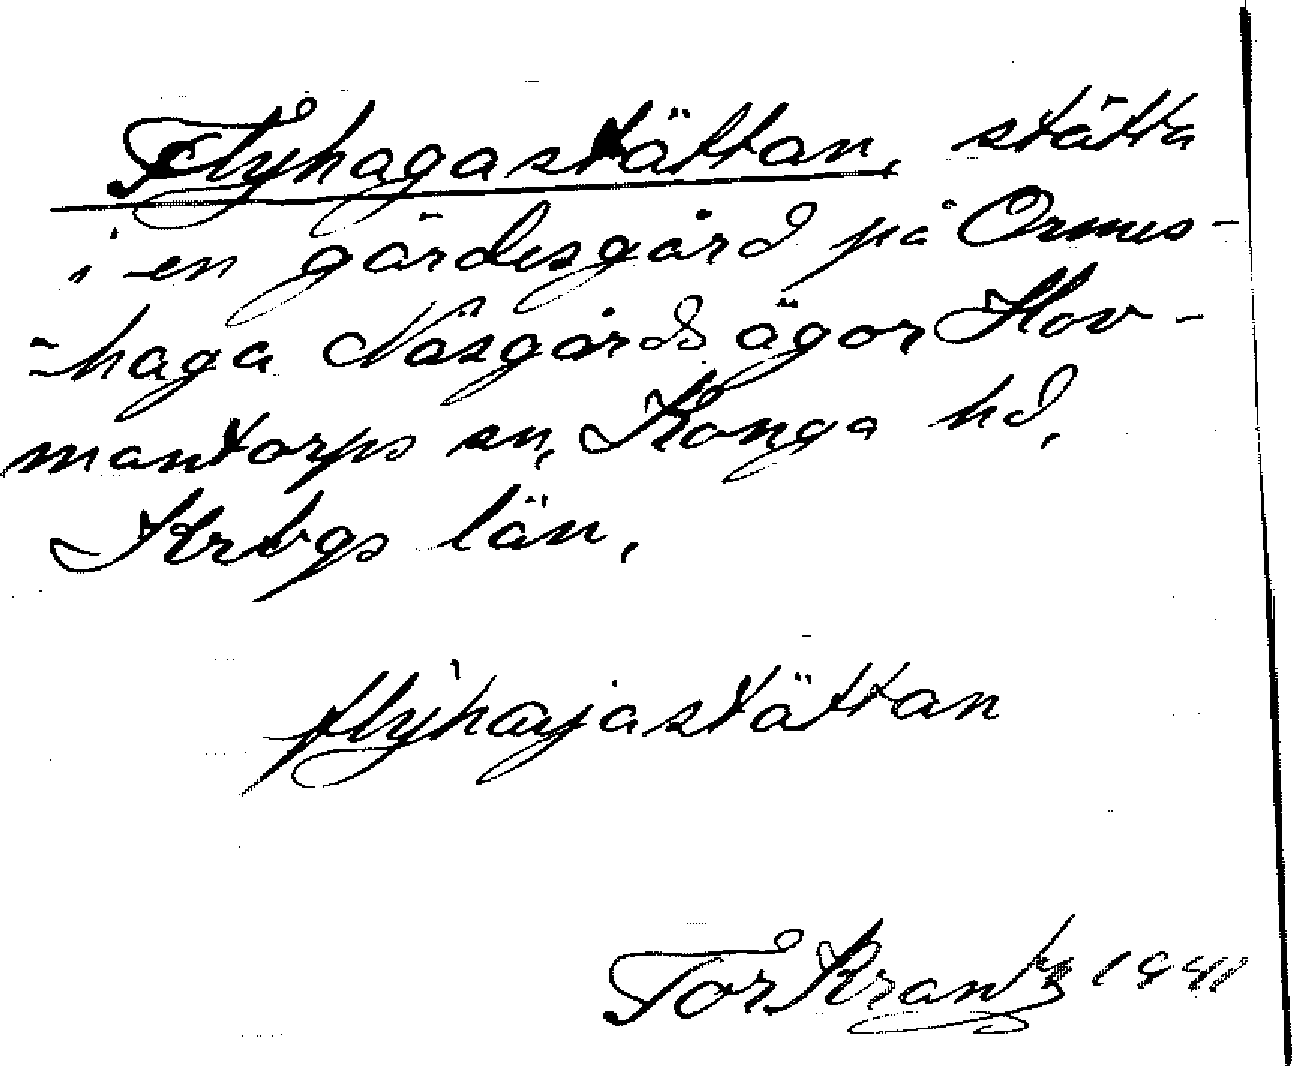 Flyhagastättan, stätta
i en gärdesgård på Ormes-
=haga Näsgårds ägor Hov-
mantorps sn, Konga hd,
Krbgs län,
flyhajastättan
Tor Krantz 1941